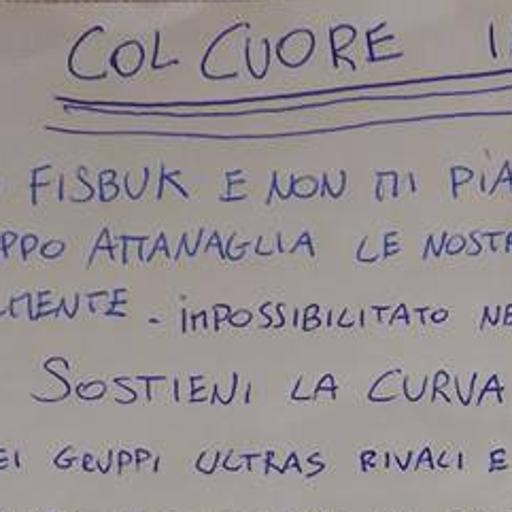 COL CUORE
FISBUK E NON MI
ATTANAGLIA LE
imPOSSIBILITATO
SOSTIENI LA CURVA
GRUPPI ULTRAS RIVALI E